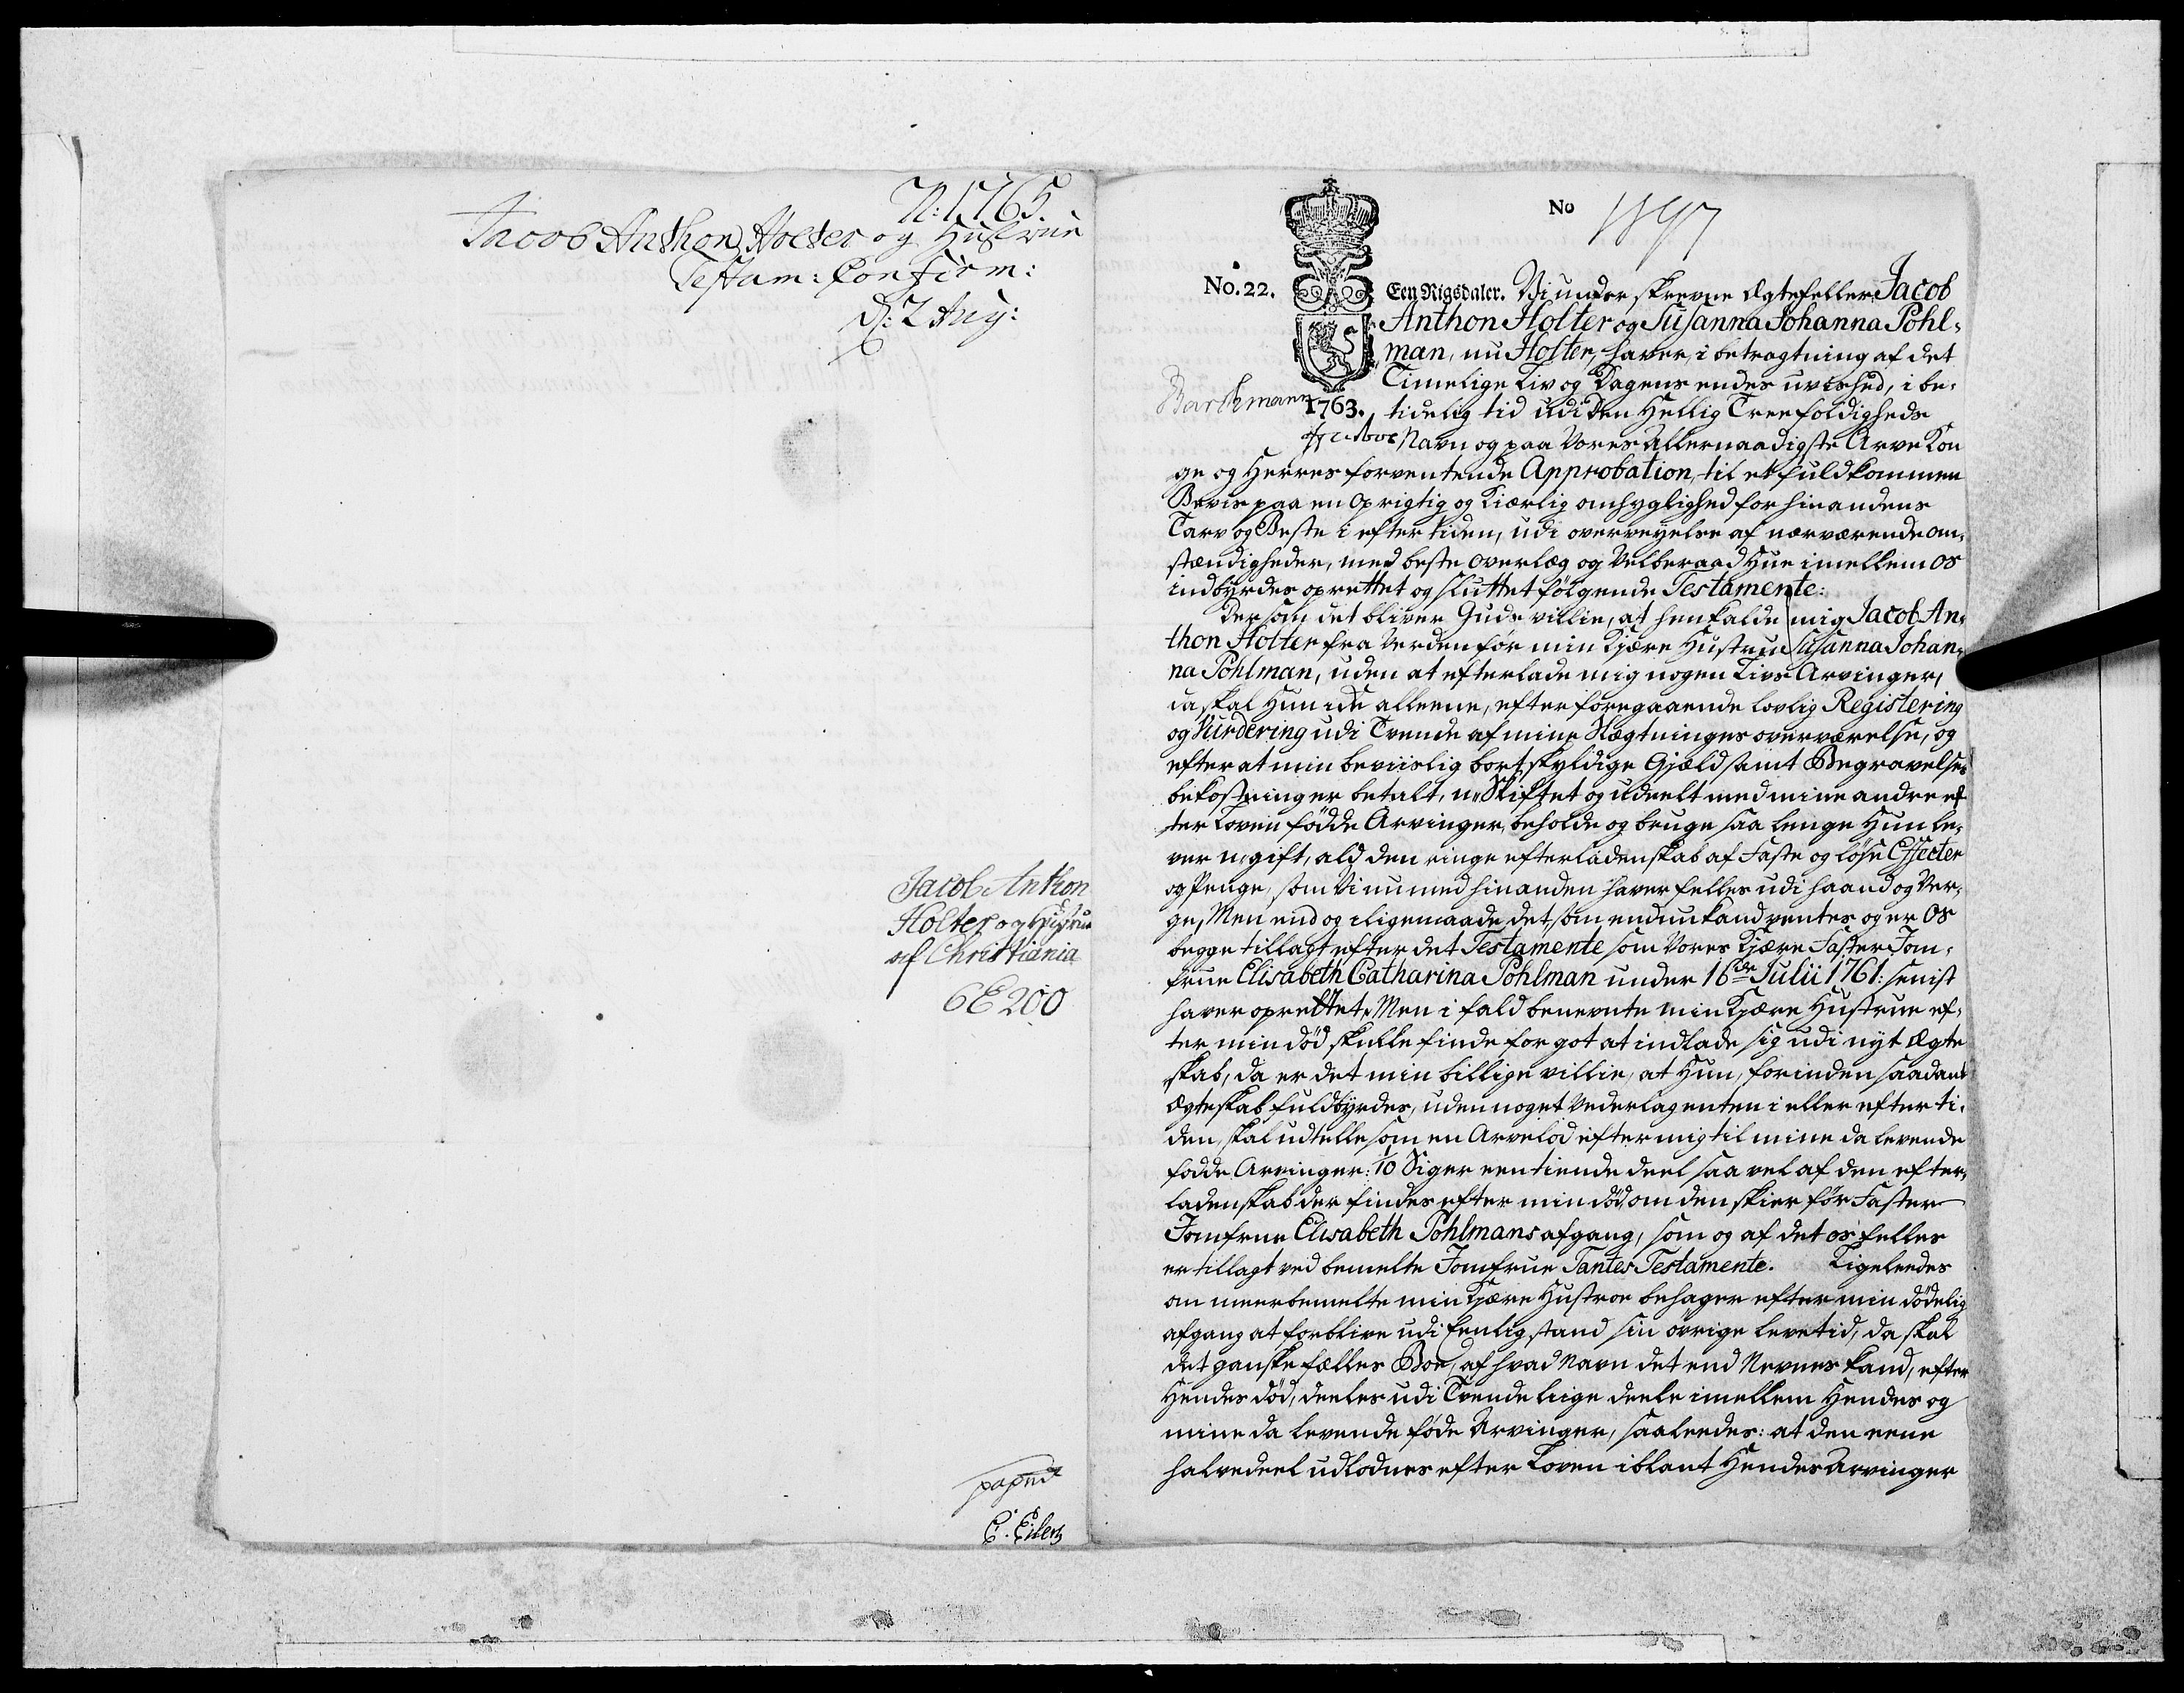 N: 1765.
Jacob Anthon Holter og Hustrue
Testam: Confirm:
d: 2 Aug:
Jacob Anthon
Holter og Hustrue
af Christiania
6E200
C. Eilers
No 1897
No. 22.
Een Rigsdaler. Vi underskrevne Ægtefeller Jacob
Anthon Holter og Susanna Johanna Pohl-
man, nu Holter, haver, i betragtning af det
Timelige Liv og Dagens endes uvished, i be-
Barthmann 1763. tidelig tid udi den Hellig Treefoldigheds
Navn og paa Vores Allernaadigste Arve Kon
ge og Herres forventende Approbation, til et fuldkommen
Beviis paa en oprigtig og kiærlig omhyglighed for hinandens
Tarv og Beste i efter tiden, udi overveyelse af nærværende om-
stændigheder, med beste overlæg og Velberaad Hue imellem os
indbyrdes oprettet og sluttet følgende Testamente:
Dersom det bliver Guds villie, at henkalde mig Jacob An-
thon Holter fra Verden før min Kjære Hustrue Susanna Johan-
na Pohlman, uden at efterlade mig nogen Livs Arvinger,
da skal Hun ide alleene, efter foregaaende lovlig Registering
og Vurdering udi Tvende af mine Slægtninges overværelse, og
efter at min beviislig bortskyldige Gjæld samt Begravelses
bekostning er betalt, u-Skiftet og udeelt med mine andre ef
ter Loven födde Arvinger, beholde og bruge saa lenge Hun le-
ver u-gift, ald den ringe efterladenskab af Faste og løse Effecter
og Penge, som Vi nu med hinanden haver felles udi haand og Ver-
ge, Men end og iligemaade det, som endnu kand ventes og er Os
begge tillagt efter det Testamente som Vores Kjære Faster Jom-
frue Elisabeth Catharina Pohlman under 16de Julii 1761: senist
haver oprettet. Men i fald benevnte min Kjære Hustrue ef-
ter min död skulle finde for got at indlade sig udi nyt Ægte
skab, da er det min billige villie, at Hun, forinden saadant
Ægteskab fuldbyrdes, uden noget Vederlag enten i eller efter ti-
den, skal udtelle som en Arvelod efter mig til mine da levende
födde Arvinger: 1/10 Siger een tiende deel saa vel af den efter-
ladenskab der findes efter min död, om den skier för Faster
Jomfrue Elisabeth Pohlmans afgang, som og af det os felles
er tillagt ved bemelte Jomfrue Tantes Testamente. Ligeleedes
om meerbemelte min Kjære Hustroe behager efter min dödelig
afgang at forblive udi Eenlig stand sin övrige levetid, da skal
det ganske fælles Boe, af hvad Navn det end Nevnes kand, efter
Hendes död, deeles udi Tvende liige deele imellem Hendes og
mine da levende föde Arvinger, saaleedes: at den eene
halvedeel udlodnes efter Loven iblant Hendes Arvinger